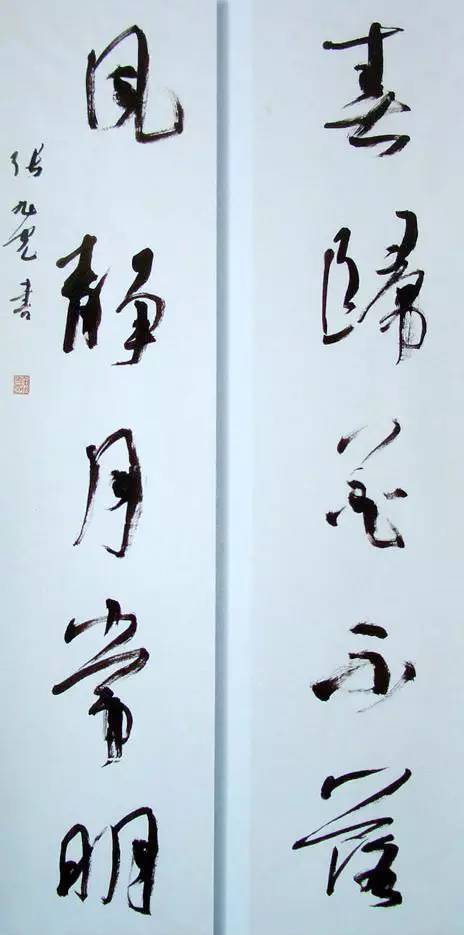 春歸花不落
風靜月常明
張旭光書